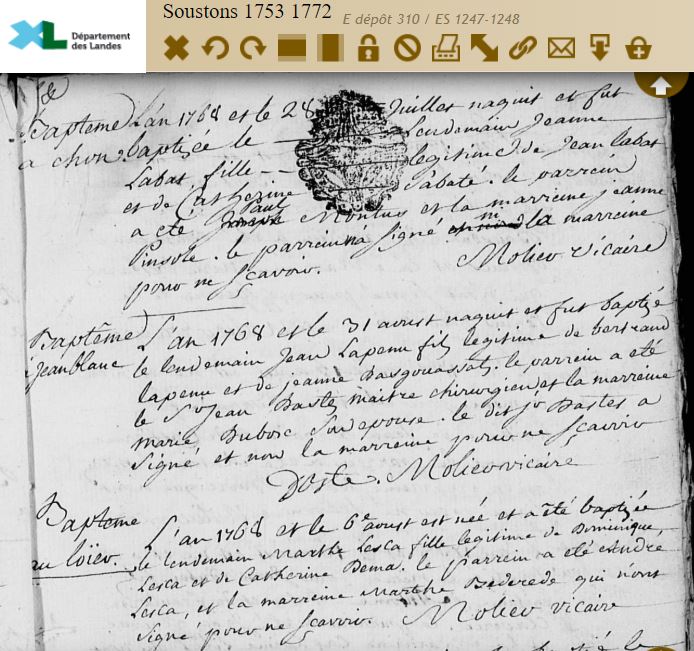 Département
des Landes
Soustons 1753 1772
E dépôt 310 / ES 1247-1248
Bapteme
L'an 1768 et le 28 Juillet naquit et fut
baptizée le Lendemain Jeanne
Labat fille legitime de Jean labat
et de Catherine Sabaté. le parrein
a eté Paul Montus et la marreine jeanne
Pinsole. le parrein n'a signé ni la marreine
pour ne sçavoir. Moliev vicaire
Baptême
jeanblanc
L'an 1768 et le 31 aoust naquit et fut baptizé
le lendemain Jean Lapenu fils legitime de bertrand
lapenu et de jeanne Dasgouassat. le parrein a eté
le Sr Jean Dastes maitre chirurgien et la marreine
marie Dubosc son epouse. le dit Sr Dastes a
signé et non la marreine pour ne sçavoir
Moliev vicaire
Bapteme
au loïev.
L'an 1768 et le 6e aoust est née et a été baptizée
le lendemain Marthe Lesca fille legitime de Dominique
Lesca et de Catherine Dema. le parrein a eté Andre
Lesca, et la marreine Marthe Bederede qui n'ont
signé pour ne sçavoir. Moliev vicaire